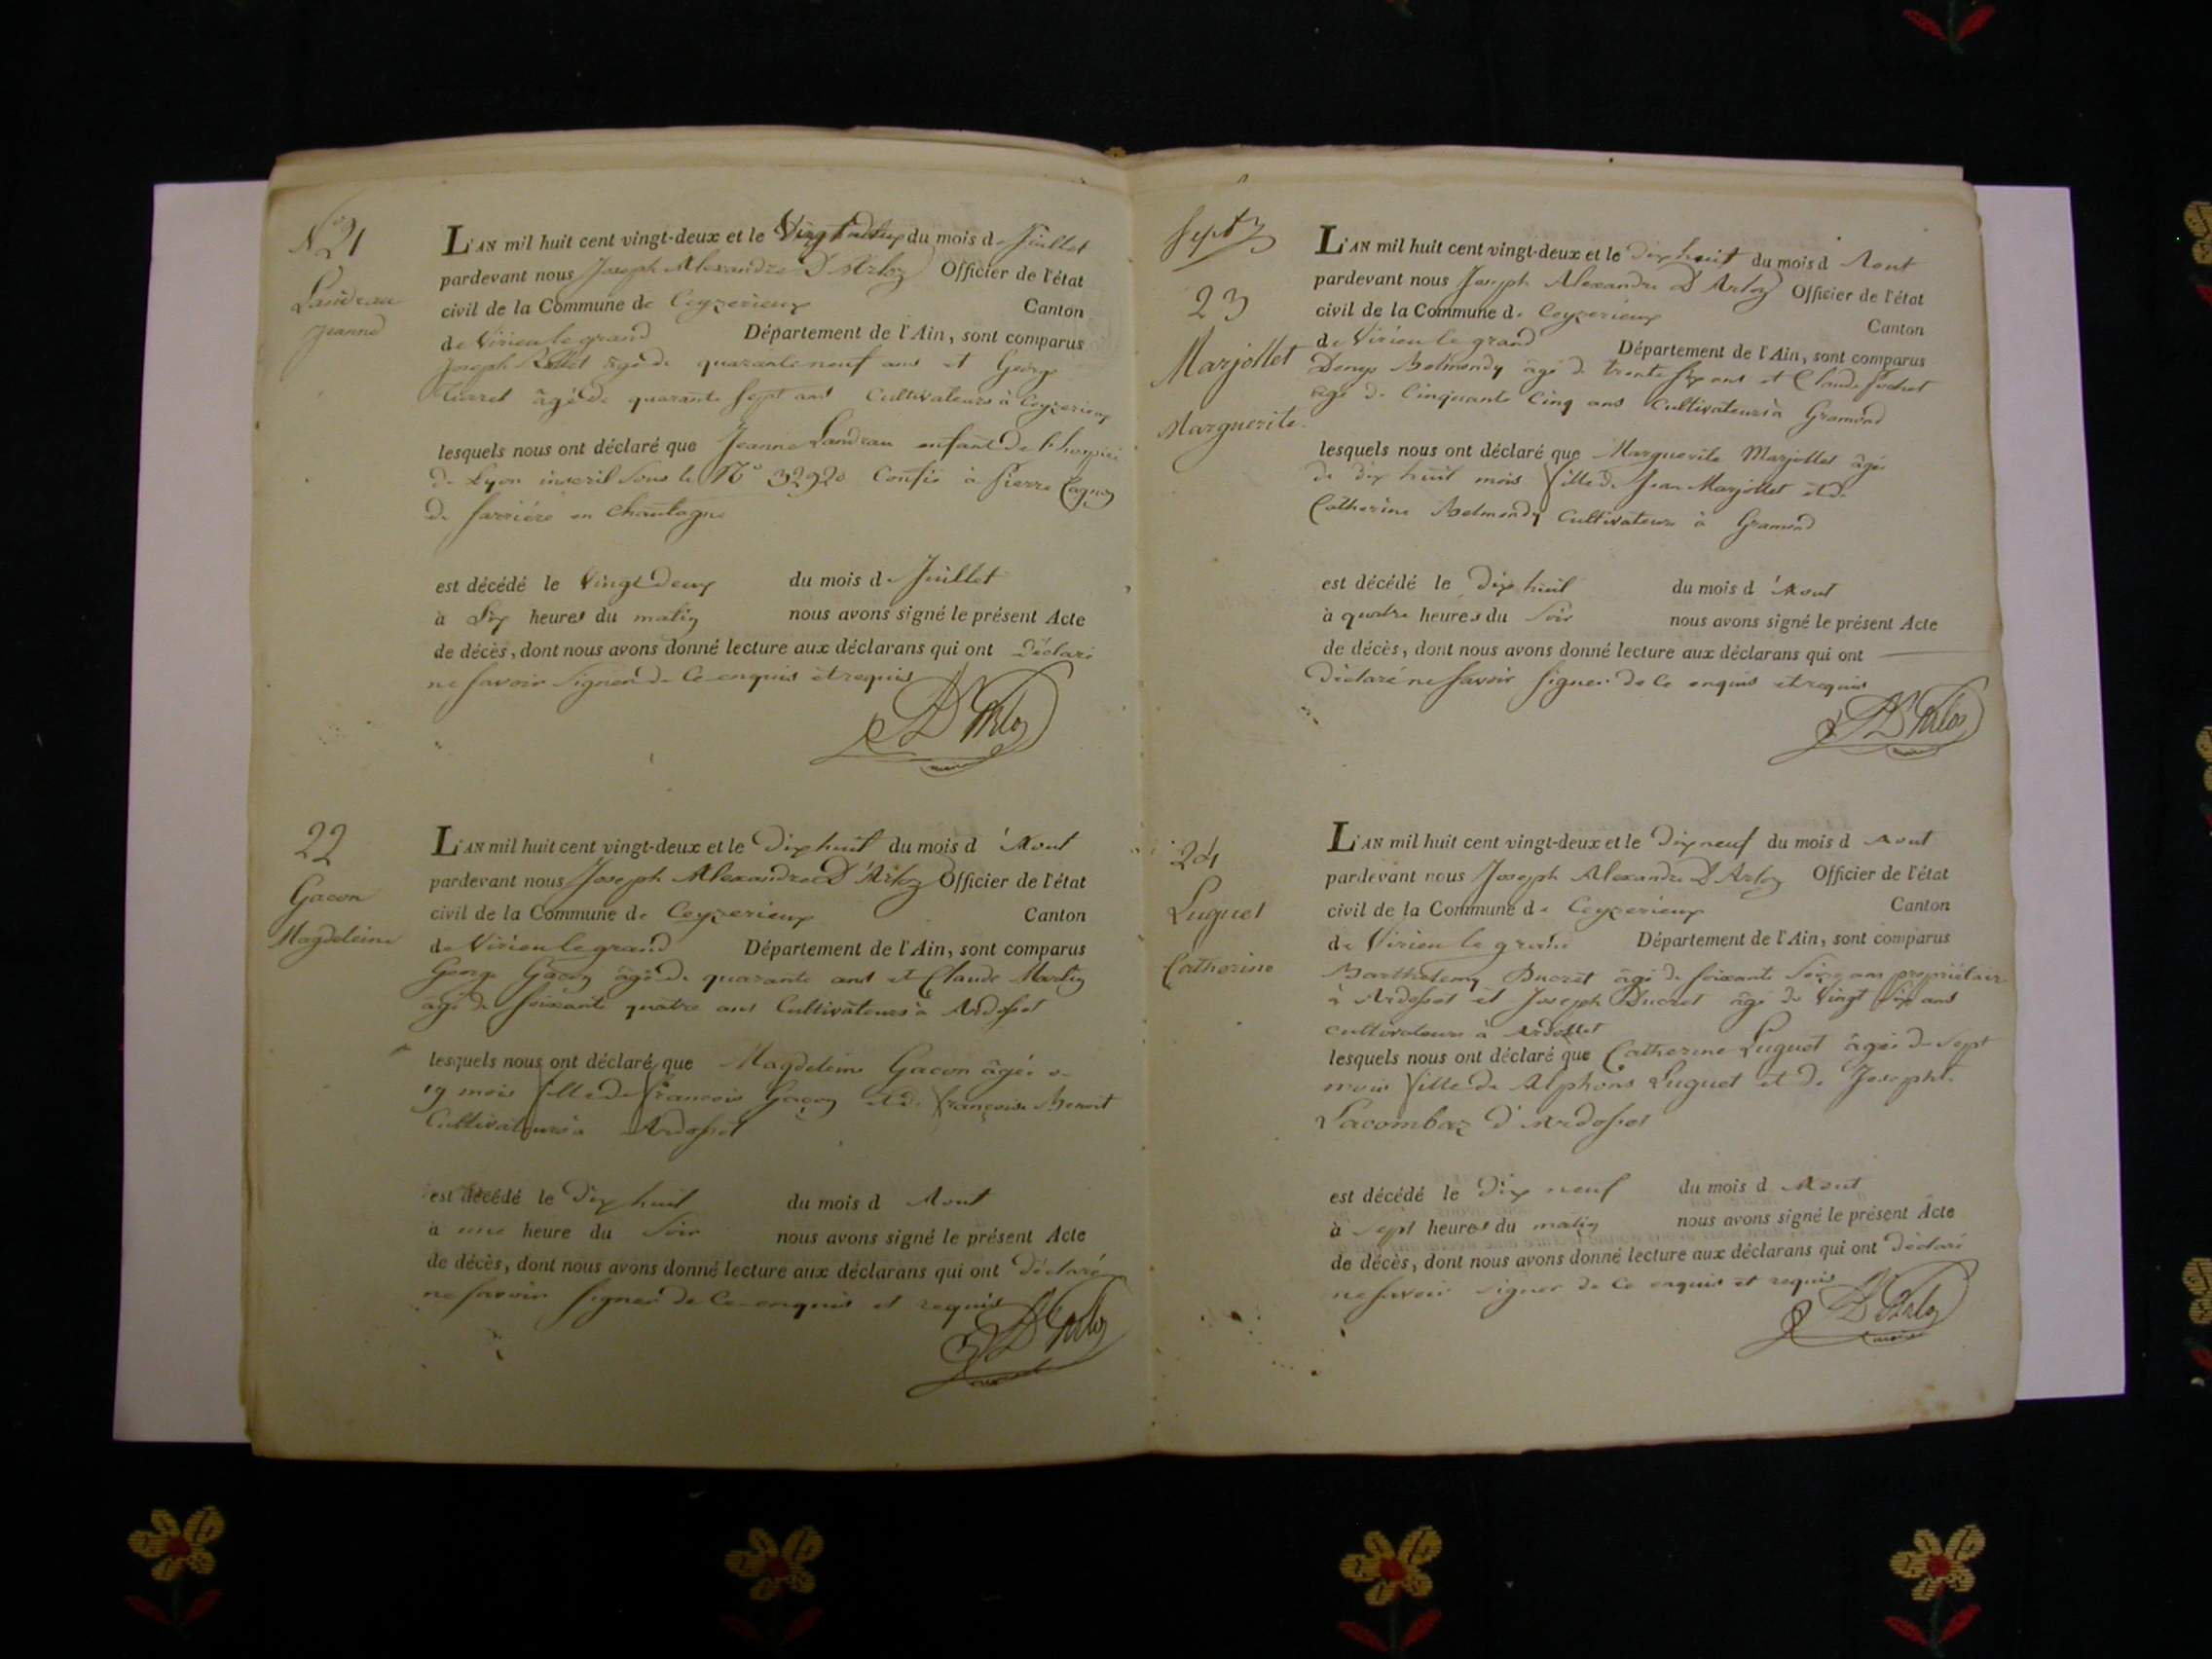 N° 21
Landrau
Jeanne
L'AN mil huit cent vingt-deux et le Vingt deux du mois de Juillet
pardevant nous Joseph Alexandre D'Arloz Officier de l'état
civil de la Commune de Ceyzerieux Canton
de Virieu le grand Département de l'Ain, sont comparus
Joseph Rollet âgé de quarante neuf ans et George
âgé de quarante sept ans Cultivateurs à Ceyzerieux
lesquels nous ont déclaré que Jeanne Landrau enfant de l'hospice
de Lyon inscrit sous le N° 32920 Confié à Pierre
de en Chautagne
est décédé le Vingt Deux du mois de Juillet
à Six heures du matin nous avons signé le présent Acte
de décès, dont nous avons donné lecture aux déclarans qui ont Déclaré
ne savoir Signer de Ce enquis et requis
D'Arloz
maire
22
Gacon
Magdeleine
L'AN mil huit cent vingt-deux et le Dix huit du mois d'Aout
pardevant nous Joseph Alexandre D'Arloz Officier de l'état
civil de la Commune de Ceyzerieux Canton
de Virieu le grand Département de l'Ain, sont comparus
George Gacon âgé de quarante ans et Claude Martin
âgé de soixante quatre ans Cultivateurs à Ardosset
lesquels nous ont déclaré que Magdeleine Gacon âgée de
19 mois fille de francois Gacon et de françoise Benoit
Cultivateurs à Ardosset
est décédé le Dix huit du mois d Aout
à une heure du Soir nous avons signé le présent Acte
de décès, dont nous avons donné lecture aux déclarans qui ont déclaré
ne savoir signer de Ce enquis et requis
D'Arloz
23
Marjollet
Marguerite
L'AN mil huit cent vingt-deux et le Dix huit du mois d Aout
pardevant nous Joseph Alexandre D'Arloz Officier de l'état
civil de la Commune de Ceyzerieux Canton
de Virieu le grand Département de l'Ain, sont comparus
Denys Belmondy âgé de trente six ans et Claude
âgé de Cinquante Cinq ans Cultivateurs à Gramond
lesquels nous ont déclaré que Marguerite Marjollet âgée
de dix huit mois fille de Jean Marjollet et de
Catherine Belmondy Cultivateurs à Gramond
est décédé le Dix huit du mois d'Aout
à quatre heures du Soir nous avons signé le présent Acte
de décès, dont nous avons donné lecture aux déclarans qui ont
Déclaré ne savoir signer de Ce enquis et requis
D'Arloz
maire
24
Luguet
Catherine
L'AN mil huit cent vingt-deux et le Dix neuf du mois d Aout
pardevant nous Joseph Alexandre D'Arloz Officier de l'état
civil de la Commune de Ceyzerieux Canton
de Virieu le grand Département de l'Ain, sont comparus
Barthelemy Ducret âgé de soixante Seize ans propriétaire
à Ardosset et Joseph Ducret âgé de Vingt Six ans
cultivateurs à Ardosset
lesquels nous ont déclaré que Catherine Luguet âgée de sept
mois fille de Alphons Luguet et de Josephte
Lacombaz d'Ardosset
est décédé le Dix neuf du mois d Aout
à sept heures du matin nous avons signé le présent Acte
de décès, dont nous avons donné lecture aux déclarans qui ont déclaré
ne savoir signer de Ce enquis et requis
D'Arloz
maire